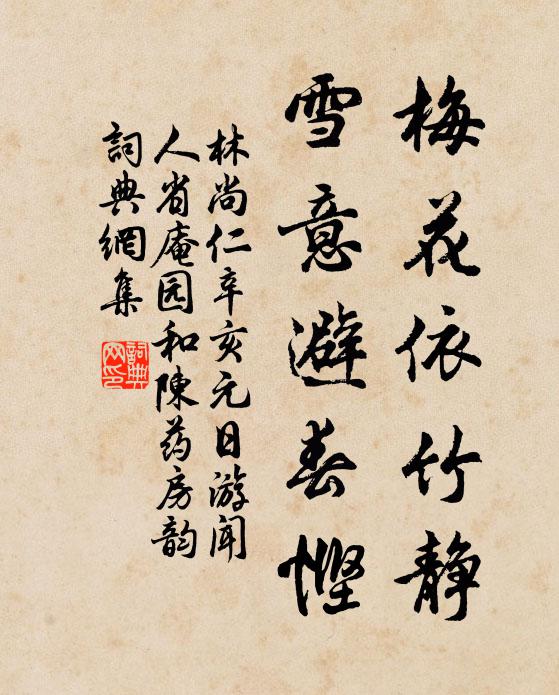 梅花依竹静
雪意避春悭
林尚仁辛亥元日游闻
人省庵园和陳药房韵
詞典網集
詞典
网印